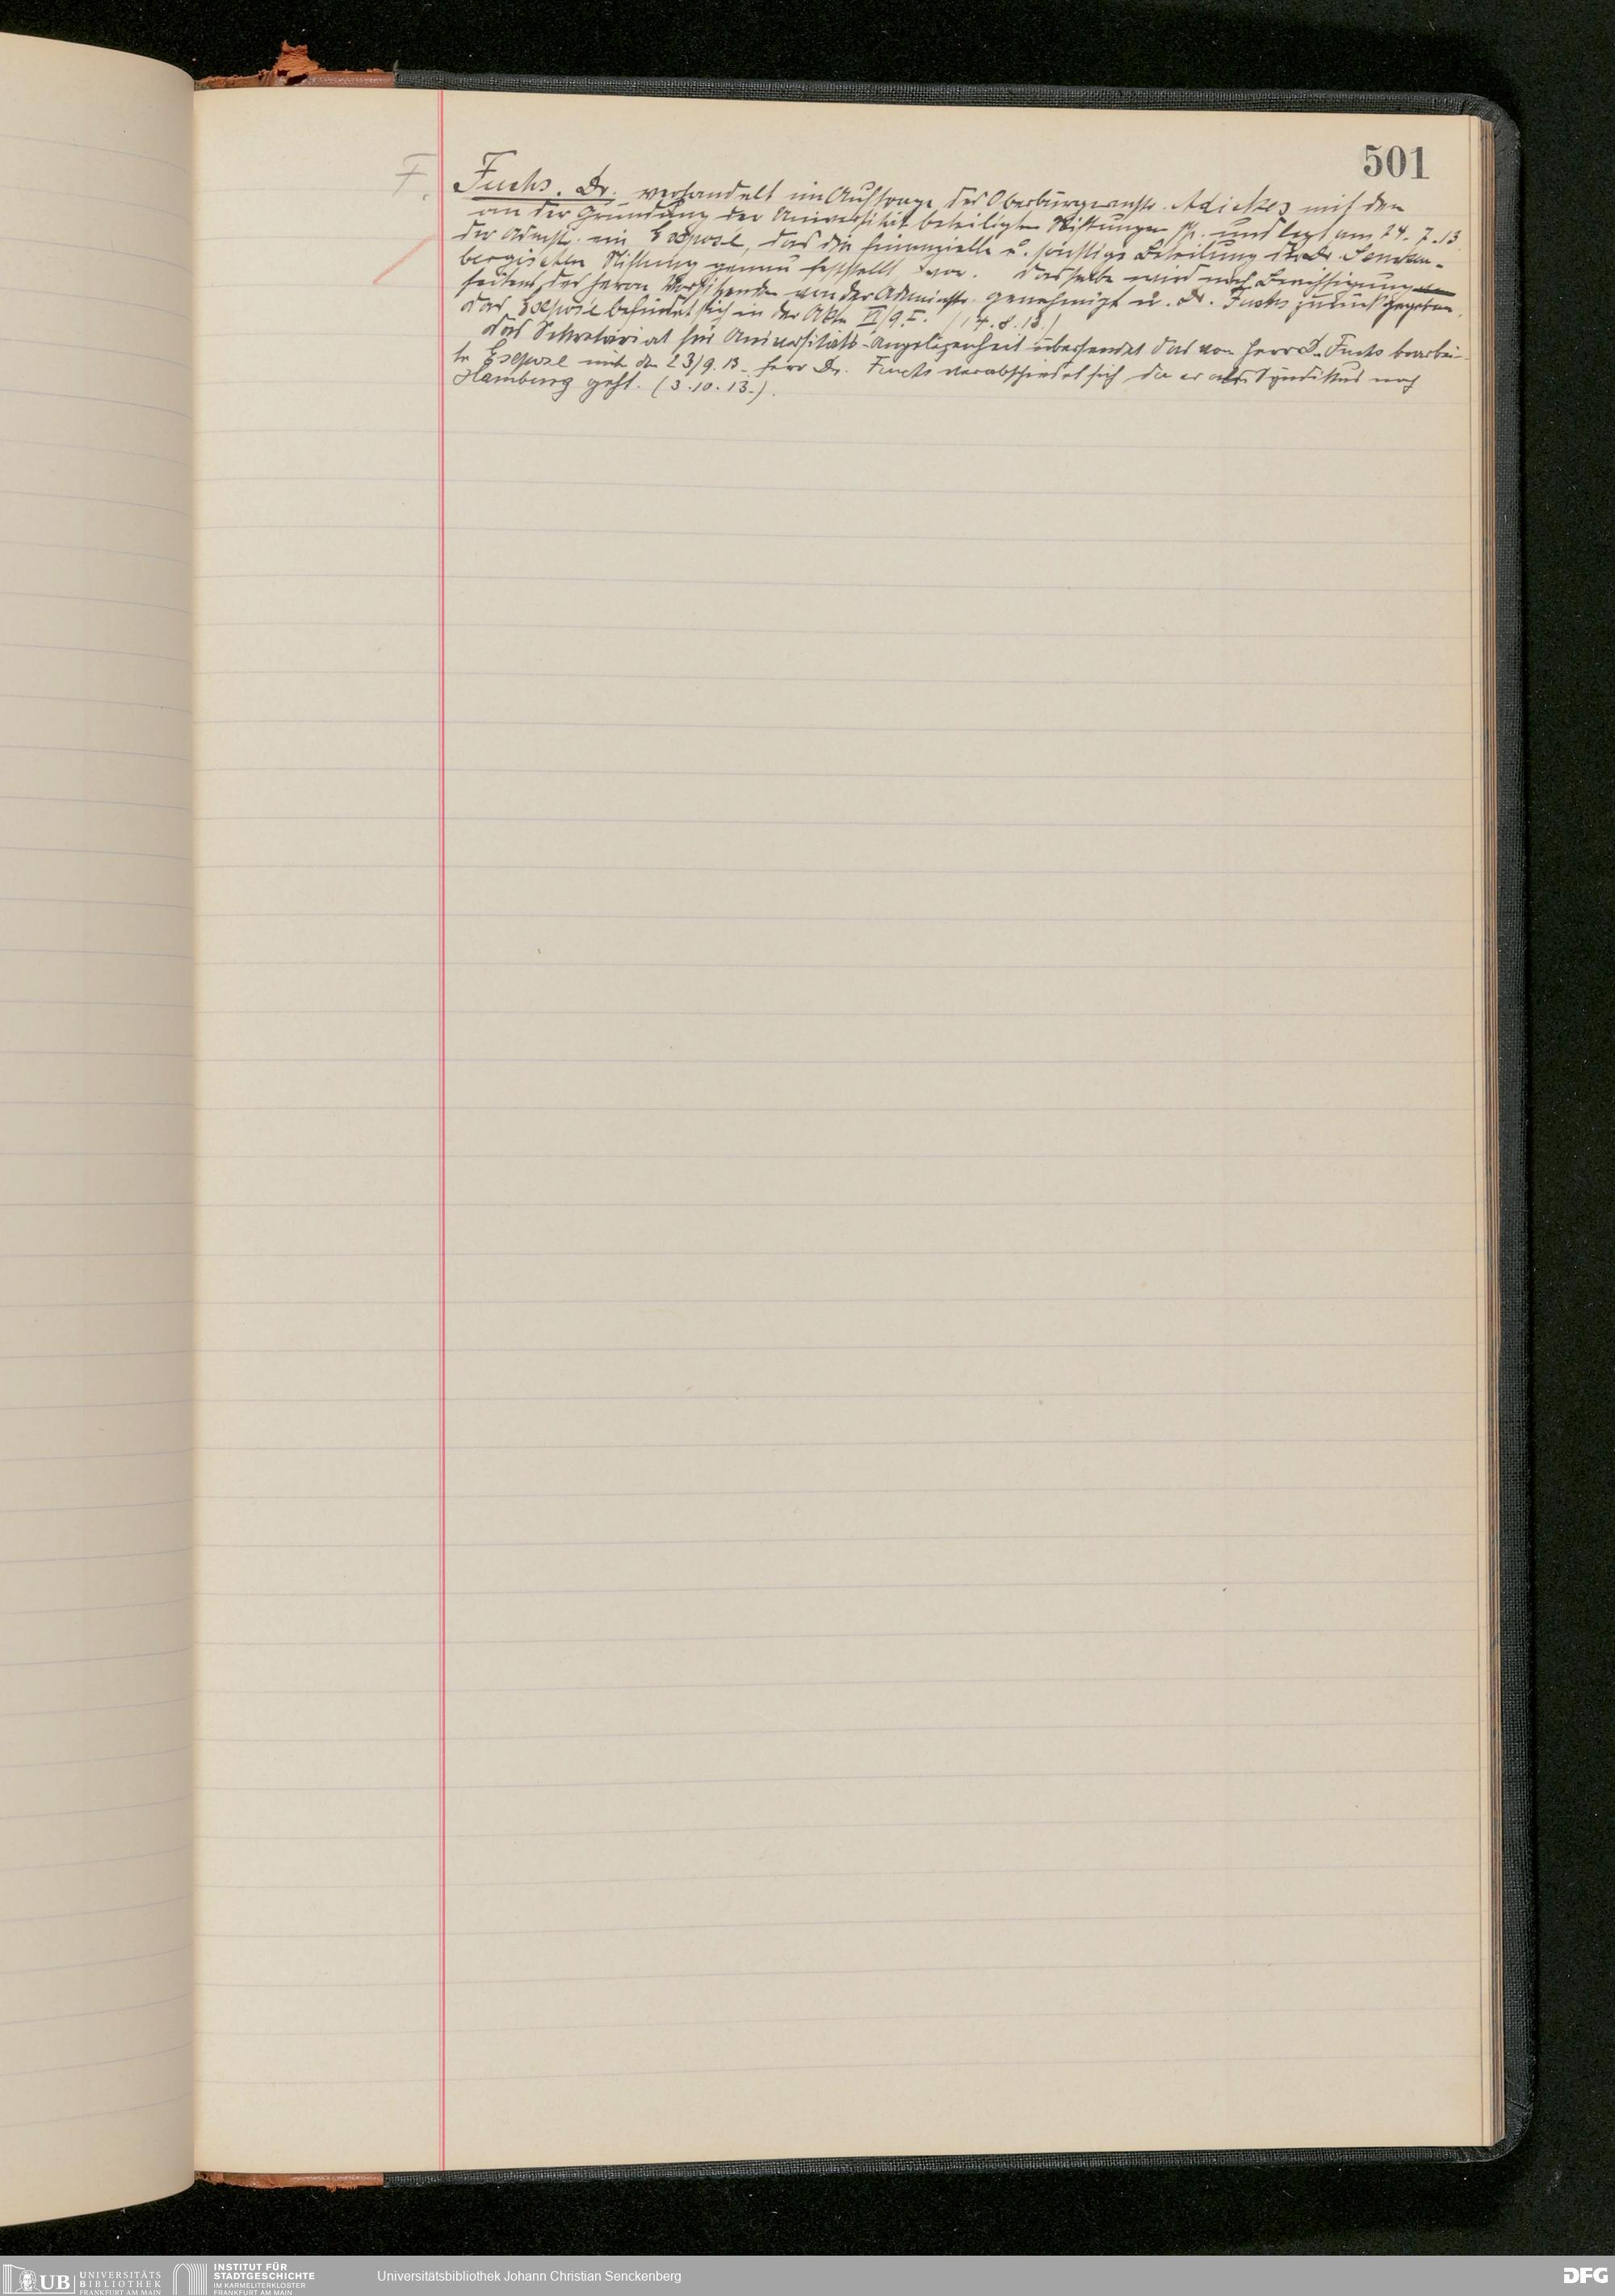 501
F.
Fuchs. Dr. verhandelt im Auftrage des Oberbürgermstr. Adickes mit den
an der Gründung der Universität beteiligten Stiftungen und legt am 24. 7. 13
der Admstr. ein Exposé, das die finanzielle u. sonstige Beteilung der Dr. Sencken-
bergischen Stiftung genau feststellt vor. Dasselbe wird nach Berichtigung
seitens des Herrn Vorsitzenden von der Adminstr. genehmigt u. Dr. Fuchs zurückgegeben.
Das Exposé befindet sich in der Akte VI/9.I. (14.8.13.)
Das Sekretariat für Universitäts-Angelegenheit übersendet das von Herrn D. Fuchs bearbei-
te Exposé mit dem 23/9.13. Herr Dr. Fuchs verabschiedet sich, da er als Syndikus nach
Hamburg geht. (3.10.13.).
UB UNIVERSITÄTS
BIBLIOTHEK
FRANKFURT AM MAIN
INSTITUT FÜR
STADTGESCHICHTE
IM KARMELITERKLOSTER
FRANKFURT AM MAIN
Universitätsbibliothek Johann Christian Senckenberg
DFG